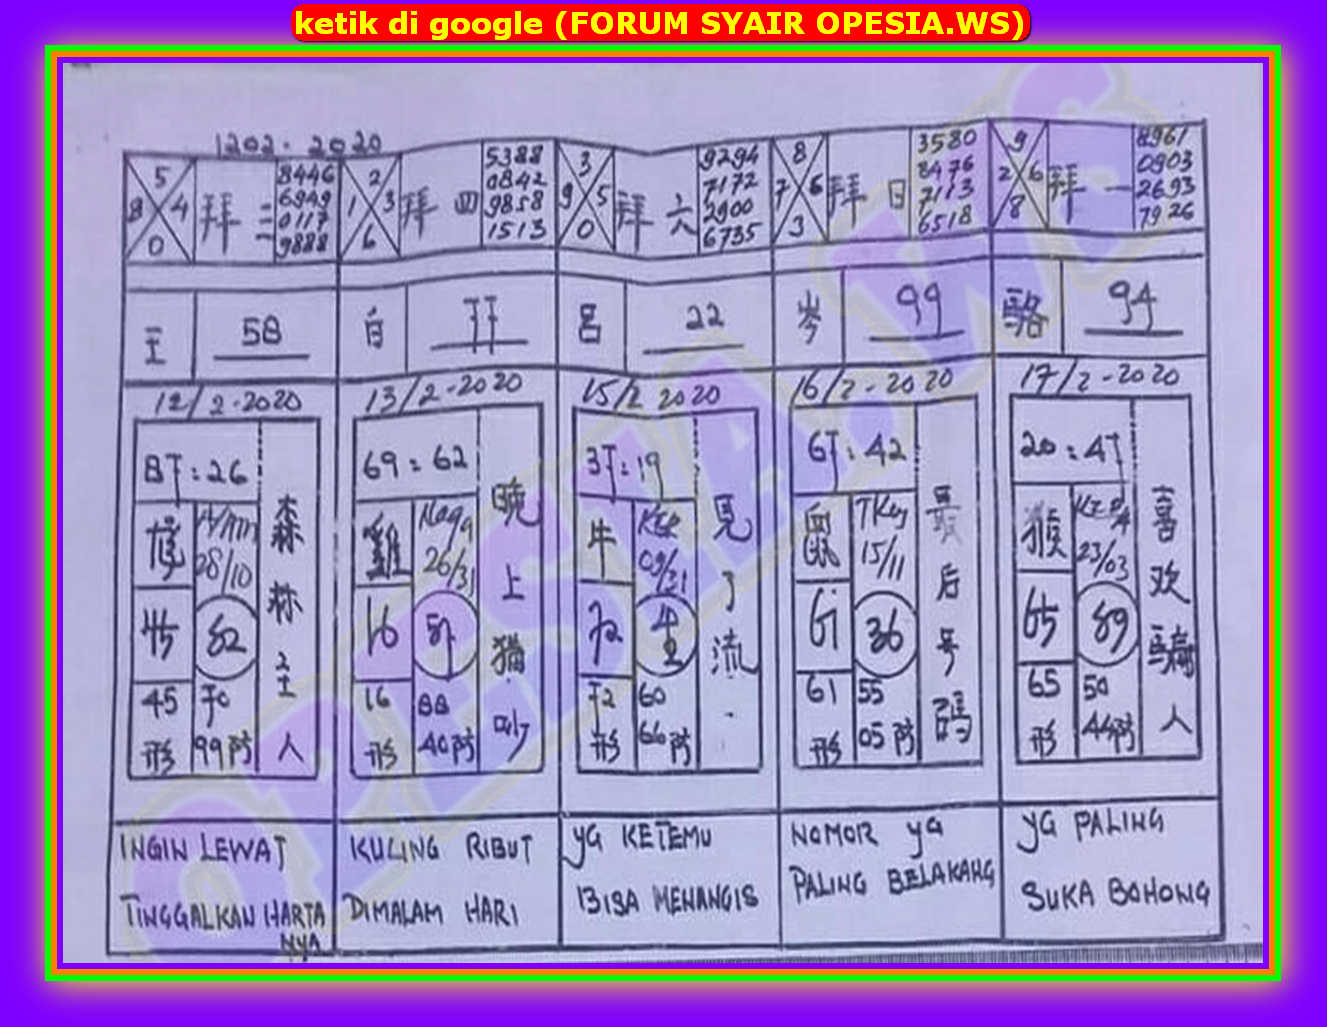 ketik di google (FORUM SYAIR OPESIA.WS)
1202. 2020
5
8 4
0
拜 三
8446
6949
0117
9888
2
1 3
6
拜 四
5388
0842
9858
1513
3
9 5
0
拜 六
9294
7172
2900
6735
8
7 6
3
拜 日
3580
8476
7113
6518
9
2 6
8
拜 一
8961
0903
2693
7926
王 58
白 77
呂 22
岑 99
駱 94
12/2-2020
87:26
08/10
45 82
45 70
形 99 防
森林之王人
13/2-2020
69:62
雞 Naga
26/31
16 57
16 88
形 40 防
晚上猫吵
15/2 2020
37:19
牛
09/31
72
72 60
形 66 防
見了流
16/2-2020
67:42
鼠 TKus
15/11
61 36
61 55
形 05 防
最后号碼
17/2-2020
20:47
猴
23/03
65 89
65 50
形 44 防
喜欢騙人
INGIN LEWAT
TINGGALKAN HARTA
NYA
KULING RIBUT
DIMALAM HARI
YG KETEMU
BISA MENANGIS
NOMOR YG
PALING BELAKANG
YG PALING
SUKA BOHONG
OPESIA.WS